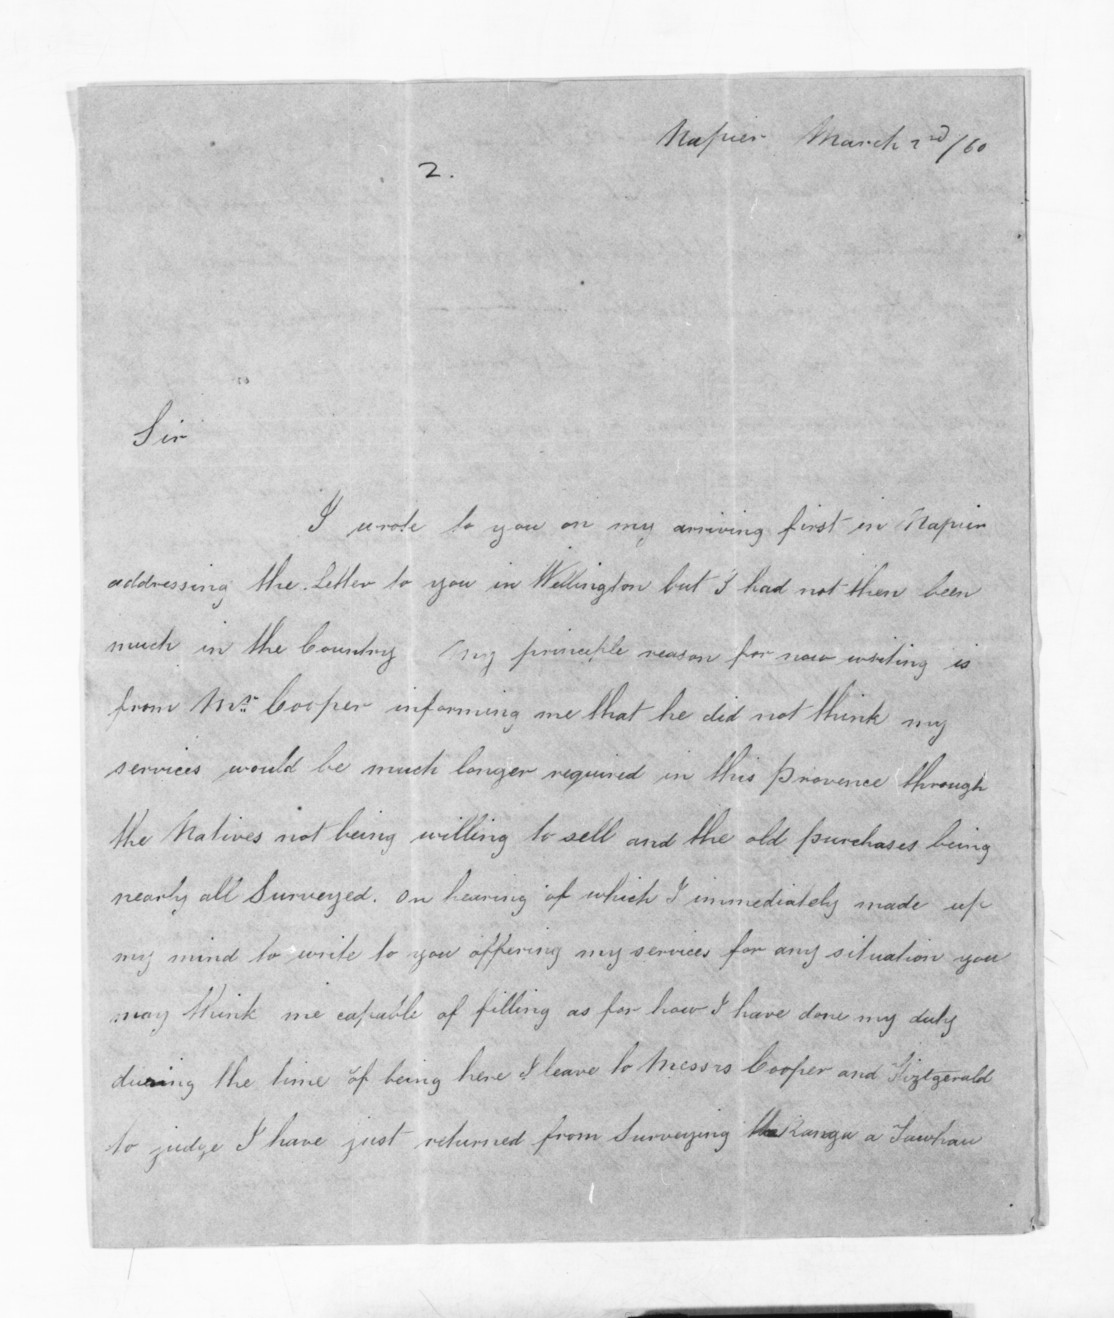 Napier March 2nd/60
2.
Sir
I wrote to you on my arriving first in Napier
addressing the Letter to you in Wellington but I had not then been
much in the Country My principle reason for now writing is
from Mr. Cooper informing me that he did not think my
services would be much longer required in this Provence through
the Natives not being willing to sell and the old purchases being
nearly all Surveyed. On hearing of which I immediately made up
my mind to write to you offering my services for any situation you
may think me capable of filling as for how I have done my duty
during the time of being here I leave to Messrs Cooper and Fiztgerald
to judge I have just returned from Surveying the Ranga a Tawhau